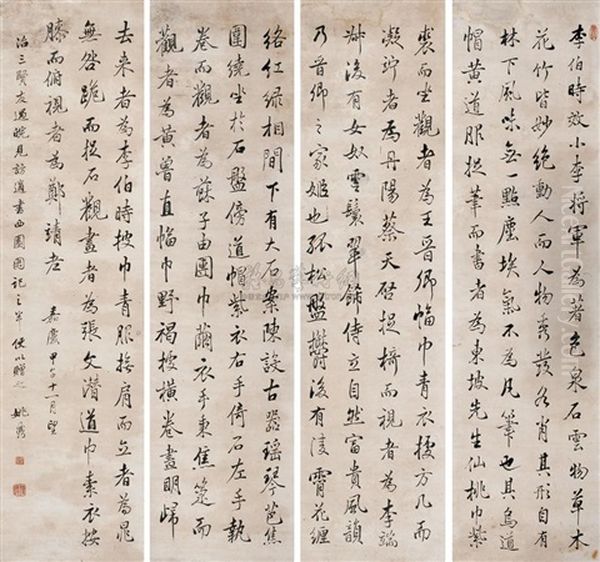 李伯時效小李將軍為著色泉石雲物草木
花竹皆妙絕動人而人物秀發各肖其形自有
林下風味無一點塵埃氣不為凡筆也其烏道
帽黃道服捉筆而書者為東坡先生仙桃巾紫
裘而坐觀者為王晉卿幅巾青衣據方几而
凝竚者為丹陽蔡天啓捉椅而視者為李端
叔後有女奴雲鬟翠飾侍立自然富貴風韻
乃晉卿之家姬也孤松盤鬱後有凌霄花纏
絡紅綠相間下有大石案陳設古器瑤琴芭蕉
圍繞坐於石盤傍道帽紫衣右手倚石左手執
卷而觀者為蘇子由團巾繭衣手秉蕉箑而
觀者為黃魯直幅巾野褐據橫卷畫明歸
去來者為李伯時披巾青服撫肩而立者為晁
無咎跪而捉石觀畫者為張文潛道巾素衣按
膝而俯視者為鄭靖老 嘉慶甲子十一月望
治三賢友過皖見訪適書西園圖記之半使以贈之 姚鼐